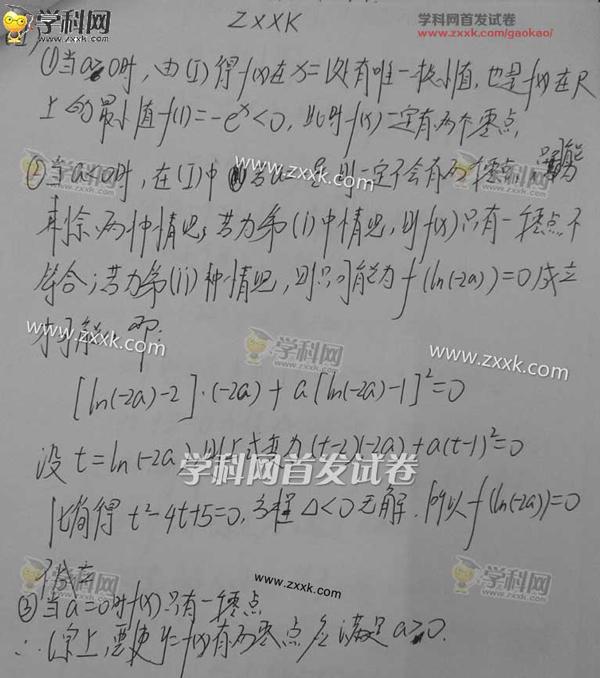 学科网 ZXXK 学科网首发试卷
www.zxxk.com www.zxxk.com/gaokao/
(1)当a>0时,由(I)得f(x)在x=1处有唯一极小值,也是f(x)在R
上的最小值f(1)=-e<0,此时f(x)一定有两个零点,
www.zxxk.com
②当a<0时,在(I)中 若a= 是则一定不会有两个零点,只能
两种情况,若为第(i)中情况,则f(x)只有一零点不
符合;若为第(ii)种情况,则只可能为f(ln(-2a))=0成立
www.zxxk.com
学科网 www.zxxk.com
才可能,即:
[ln(-2a)-2]·(-2a)+a[ln(-2a)-1]²=0
设t=ln(-2a),则上式变为(t-2)(-2a)+a(t-1)²=0
学科网首发试卷
化简得t²-4t+5=0,方程Δ<0无解.所以f(ln(-2a))=0
不成立
www.zxxk.com 学科网
③当a=0时f(x)只有一零点
∴综上,要使y=f(x)有两零点应满足a>0.